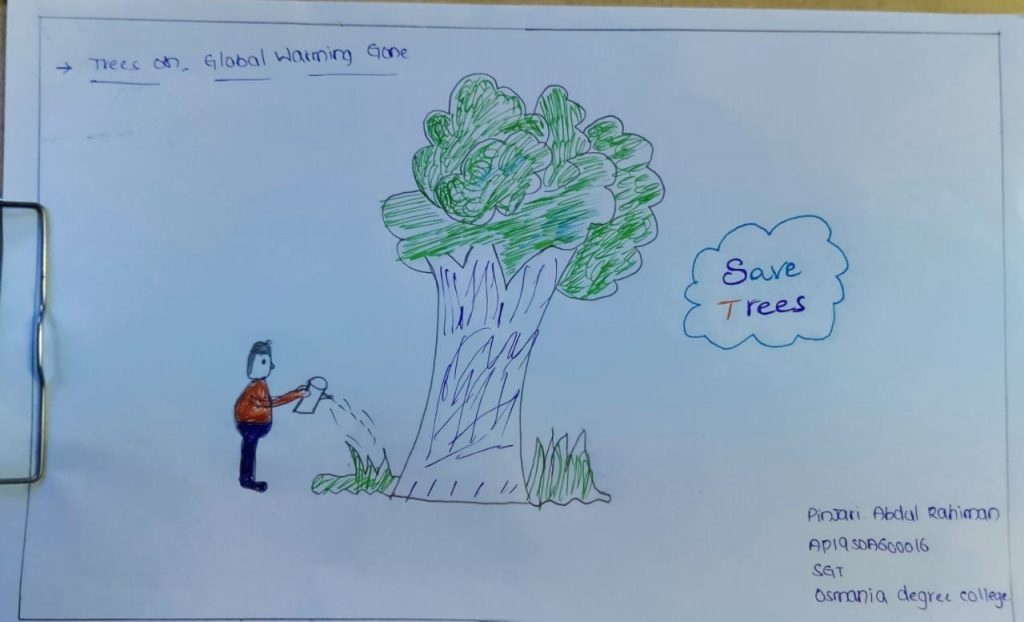 → Trees on, Global Warming Gone
Save
Trees
Pinjari. Abdul Rahiman
AP19SDAG00016
SGT
Osmania degree college